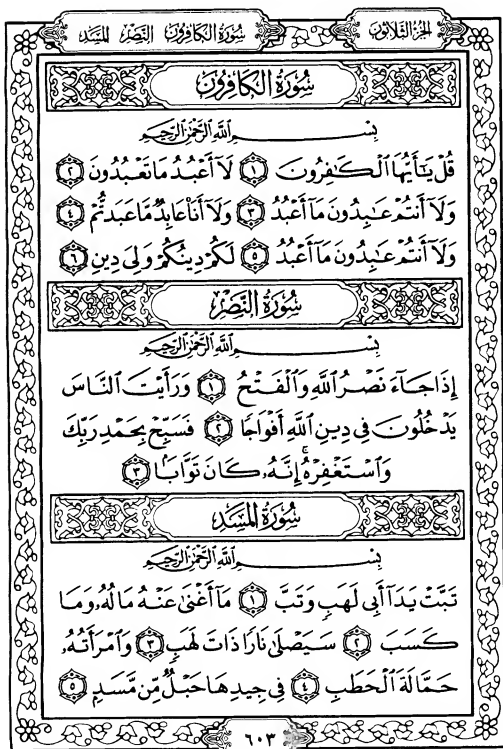 سُورَةُ الكَافِرُونَ النَّصْرِ المَسَد
الجُزْءُ الثَّلَاثُونَ
سُورَةُ الكَافِرُونَ
بِسْمِ اللَّهِ الرَّحْمَٰنِ الرَّحِيمِ
قُلْ يَٰٓأَيُّهَا ٱلْكَٰفِرُونَ ١ لَآ أَعْبُدُ مَا تَعْبُدُونَ ٢
وَلَآ أَنتُمْ عَٰبِدُونَ مَآ أَعْبُدُ ٣ وَلَآ أَنَا۠ عَابِدٌ مَّا عَبَدتُّمْ ٤
وَلَآ أَنتُمْ عَٰبِدُونَ مَآ أَعْبُدُ ٥ لَكُمْ دِينُكُمْ وَلِىَ دِينِ ٦
سُورَةُ النَّصْرِ
بِسْمِ اللَّهِ الرَّحْمَٰنِ الرَّحِيمِ
إِذَا جَآءَ نَصْرُ ٱللَّهِ وَٱلْفَتْحُ ١ وَرَأَيْتَ ٱلنَّاسَ
يَدْخُلُونَ فِى دِينِ ٱللَّهِ أَفْوَاجًا ٢ فَسَبِّحْ بِحَمْدِ رَبِّكَ
وَٱسْتَغْفِرْهُ ۚ إِنَّهُۥ كَانَ تَوَّابًۢا ٣
سُورَةُ المَسَدِ
بِسْمِ اللَّهِ الرَّحْمَٰنِ الرَّحِيمِ
تَبَّتْ يَدَآ أَبِى لَهَبٍ وَتَبَّ ١ مَآ أَغْنَىٰ عَنْهُ مَالُهُۥ وَمَا
كَسَبَ ٢ سَيَصْلَىٰ نَارًا ذَاتَ لَهَبٍ ٣ وَٱمْرَأَتُهُۥ
حَمَّالَةَ ٱلْحَطَبِ ٤ فِى جِيدِهَا حَبْلٌ مِّن مَّسَدٍۭ ٥
٦٠٣